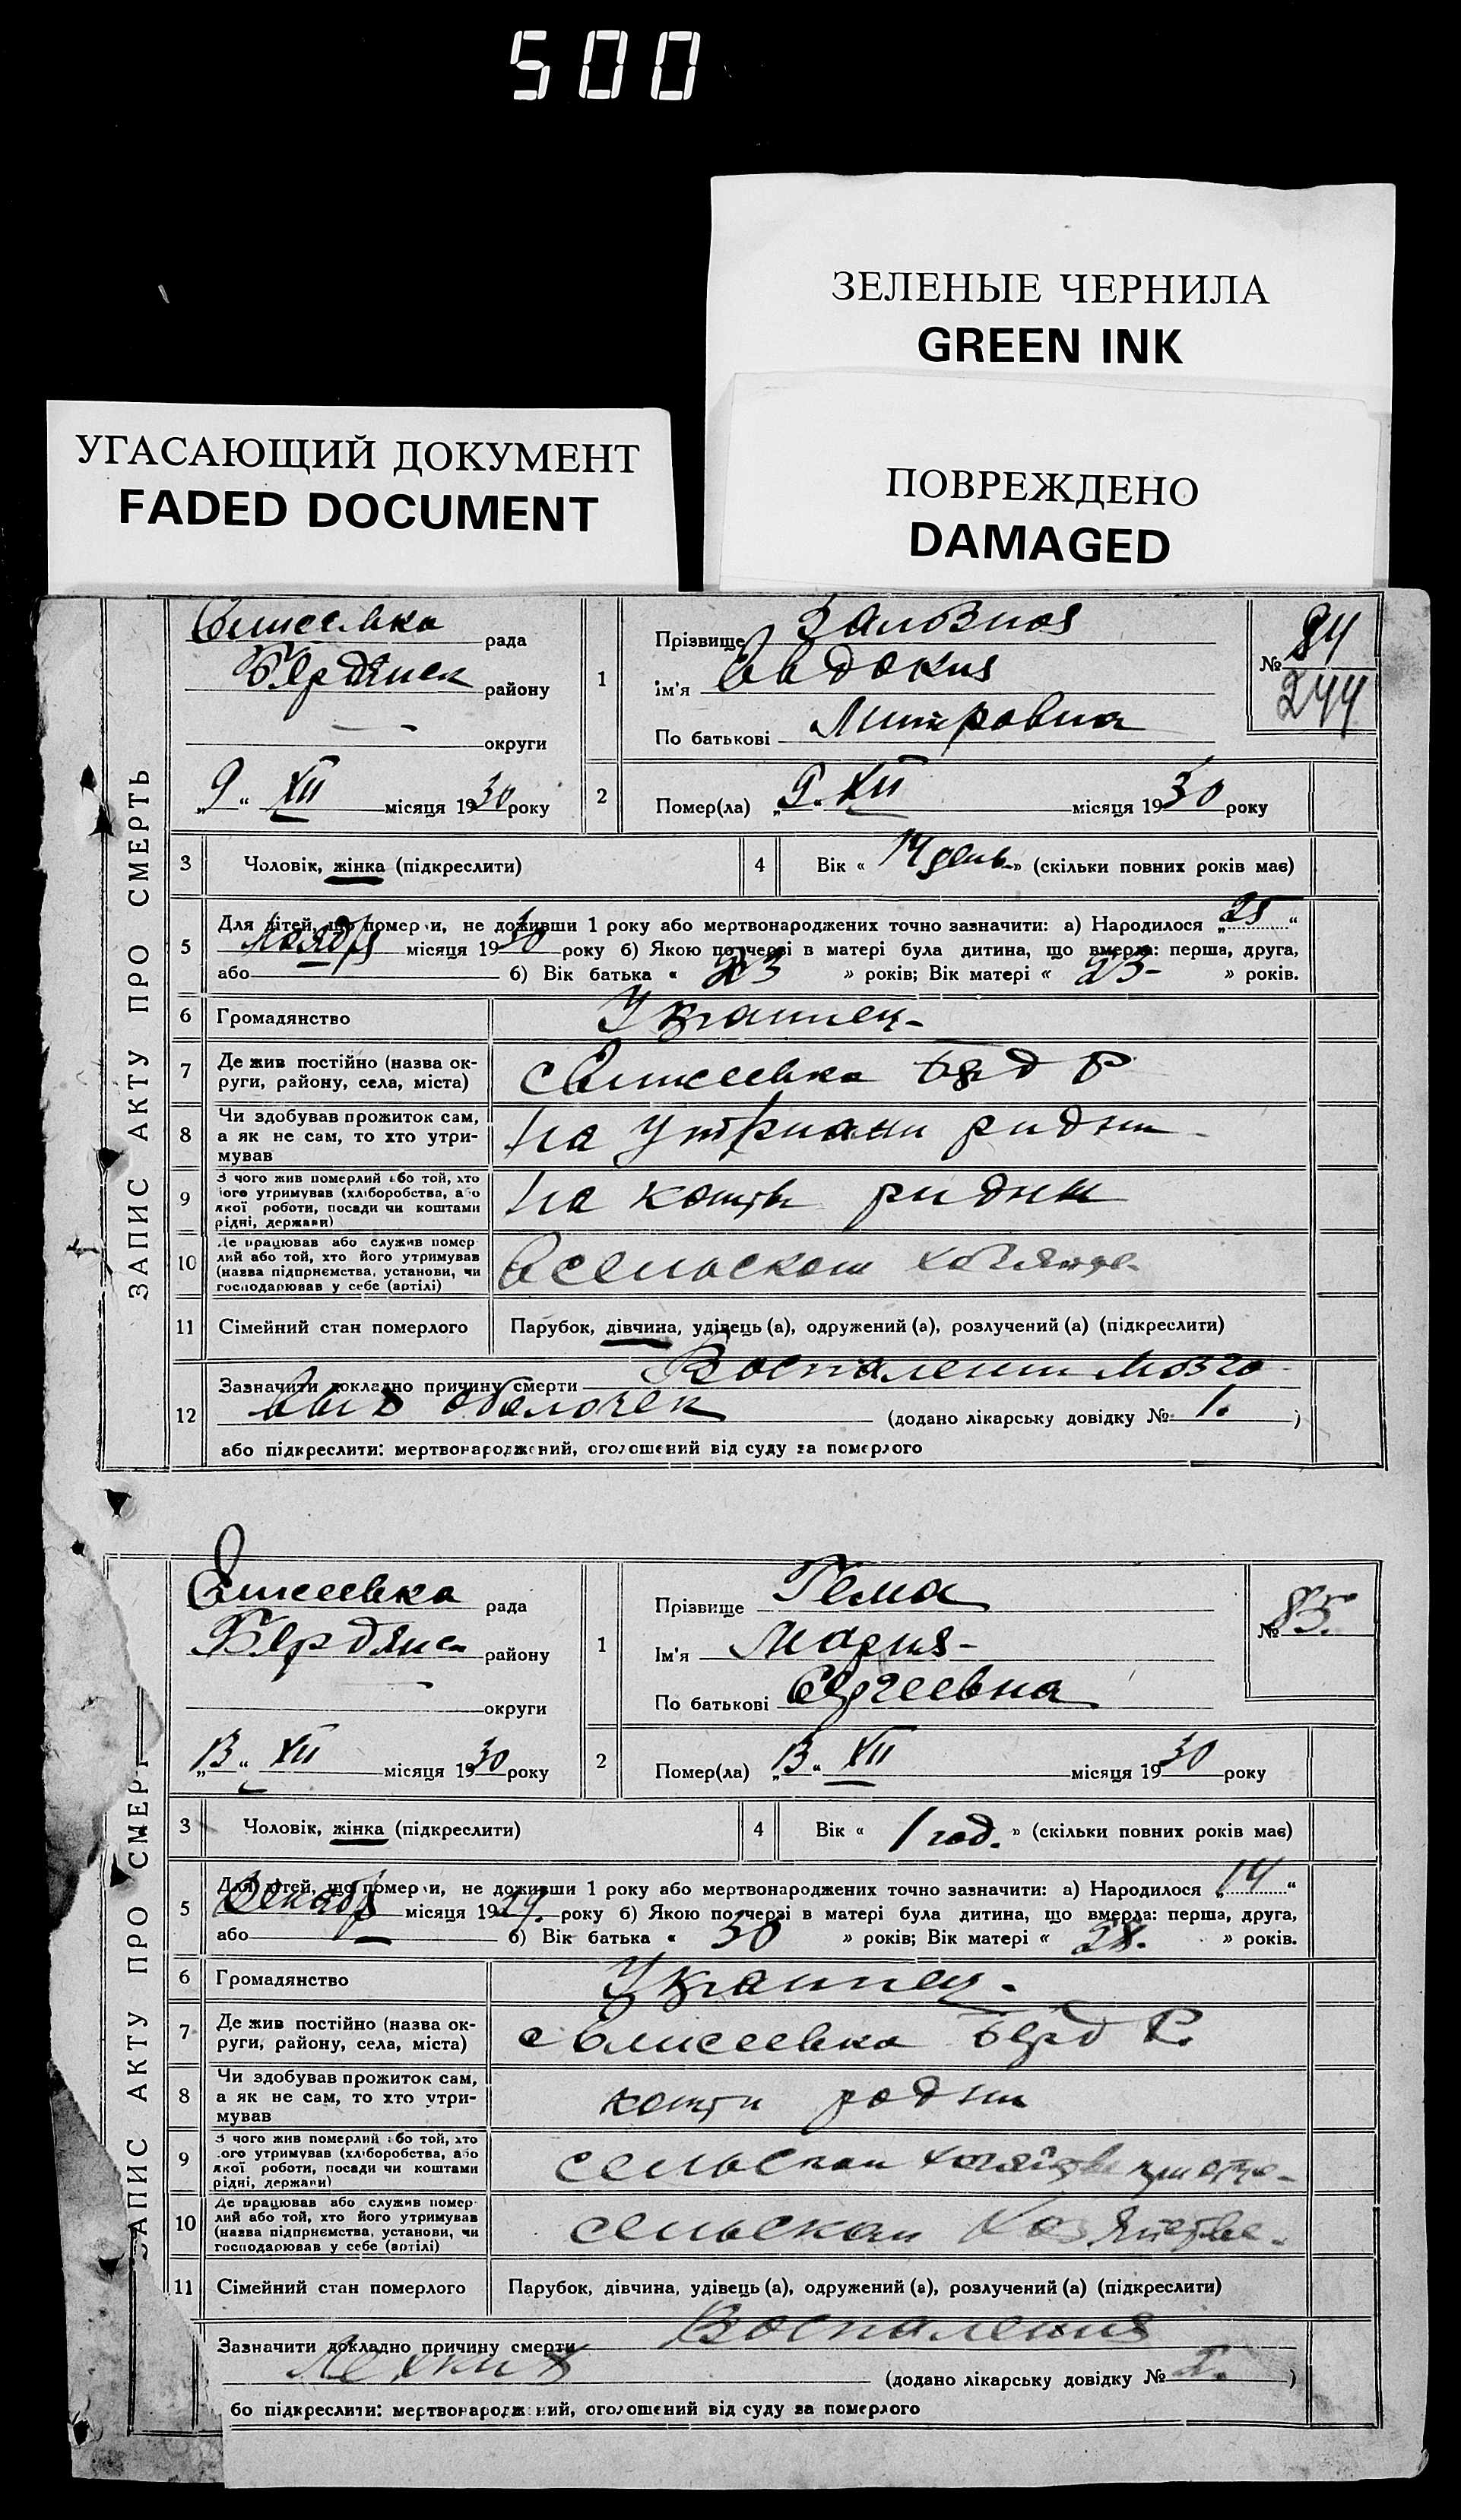 500
ЗЕЛЕНЫЕ ЧЕРНИЛА
GREEN INK
УГАСАЮЩИЙ ДОКУМЕНТ
FADED DOCUMENT
ПОВРЕЖДЕНО
DAMAGED
ЗАПИС АКТУ ПРО СМЕРТЬ
Елисеевка рада
Бердянск району
округи
„9“ XII місяця 1930 року
1
Прізвище
ім'я Евдокия
По батькові Митровна
№ 84
244
2 Помер(ла) „9. XII місяця 1930 року
3 Чоловік, жінка (підкреслити)
4 Вік « 14 день » (скільки повних років має)
5 Для дітей, що померли, не доживши 1 року або мертвонароджених точно зазначити: а) Народилося „25“
Ноября місяця 1930 року б) Якою по черзі в матері була дитина, що вмерла: перша, друга,
або б) Вік батька « 23 » років; Вік матері « 23 » років.
6 Громадянство Украинец
7 Де жив постійно (назва ок-
руги, району, села, міста) с Елисеевка Берд Р
8 Чи здобував прожиток сам,
а як не сам, то хто утри-
мував На утримани ридни
9 З чого жив померлий або той, хто
його утримував (хліборобства, або
якої роботи, посади чи коштами
рідні, держави) На кошты ридни
10 Де працював або служив помер
лий або той, хто його утримував
(назва підприємства, установи, чи
господарював у себе (артілі) В сельском
11 Сімейний стан померлого Парубок, дівчина, удівець (а), одружений (а), розлучений (а) (підкреслити)
12 Зазначити докладно причину смерти Воспаление мозго
вых оболочек (додано лікарську довідку № 1. )
або підкреслити: мертвонароджений, оголошений від суду за померлого
ЗАПИС АКТУ ПРО СМЕРТ
Елисеевка рада
Бердянск району
округи
„13“ XII місяця 1930 року
1
Прізвище Гема
Ім'я Мария
По батькові Сергеевна
№ 85.
2 Помер(ла) „13“ XII місяця 1930 року
3 Чоловік, жінка (підкреслити)
4 Вік « 1 год. » (скільки повних років має)
5 Для дітей, що померли, не доживши 1 року або мертвонароджених точно зазначити: а) Народилося „14“
Декабр місяця 1929. року б) Якою по черзі в матері була дитина, що вмерла: перша, друга,
або б) Вік батька « 30 » років; Вік матері « 28. » років.
6 Громадянство Украинец.
7 Де жив постійно (назва ок-
руги, району, села, міста) с Елисеевка Берд Р.
8 Чи здобував прожиток сам,
а як не сам, то хто утри-
мував кошти родни
9 З чого жив померлий або той, хто
його утримував (хліборобства, або
якої роботи, посади чи коштами
рідні, держави) сельском
10 Де працював або служив помер
лий або той, хто його утримував
(назва підприємства, установи, чи
господарював у себе (артілі) сельском хозяйстве.
11 Сімейний стан померлого Парубок, дівчина, удівець (а), одружений (а), розлучений (а) (підкреслити)
Зазначити докладно причину смерти Воспаления
Легких (додано лікарську довідку № )
бо підкреслити: мертвонароджений, оголошений від суду за померлого